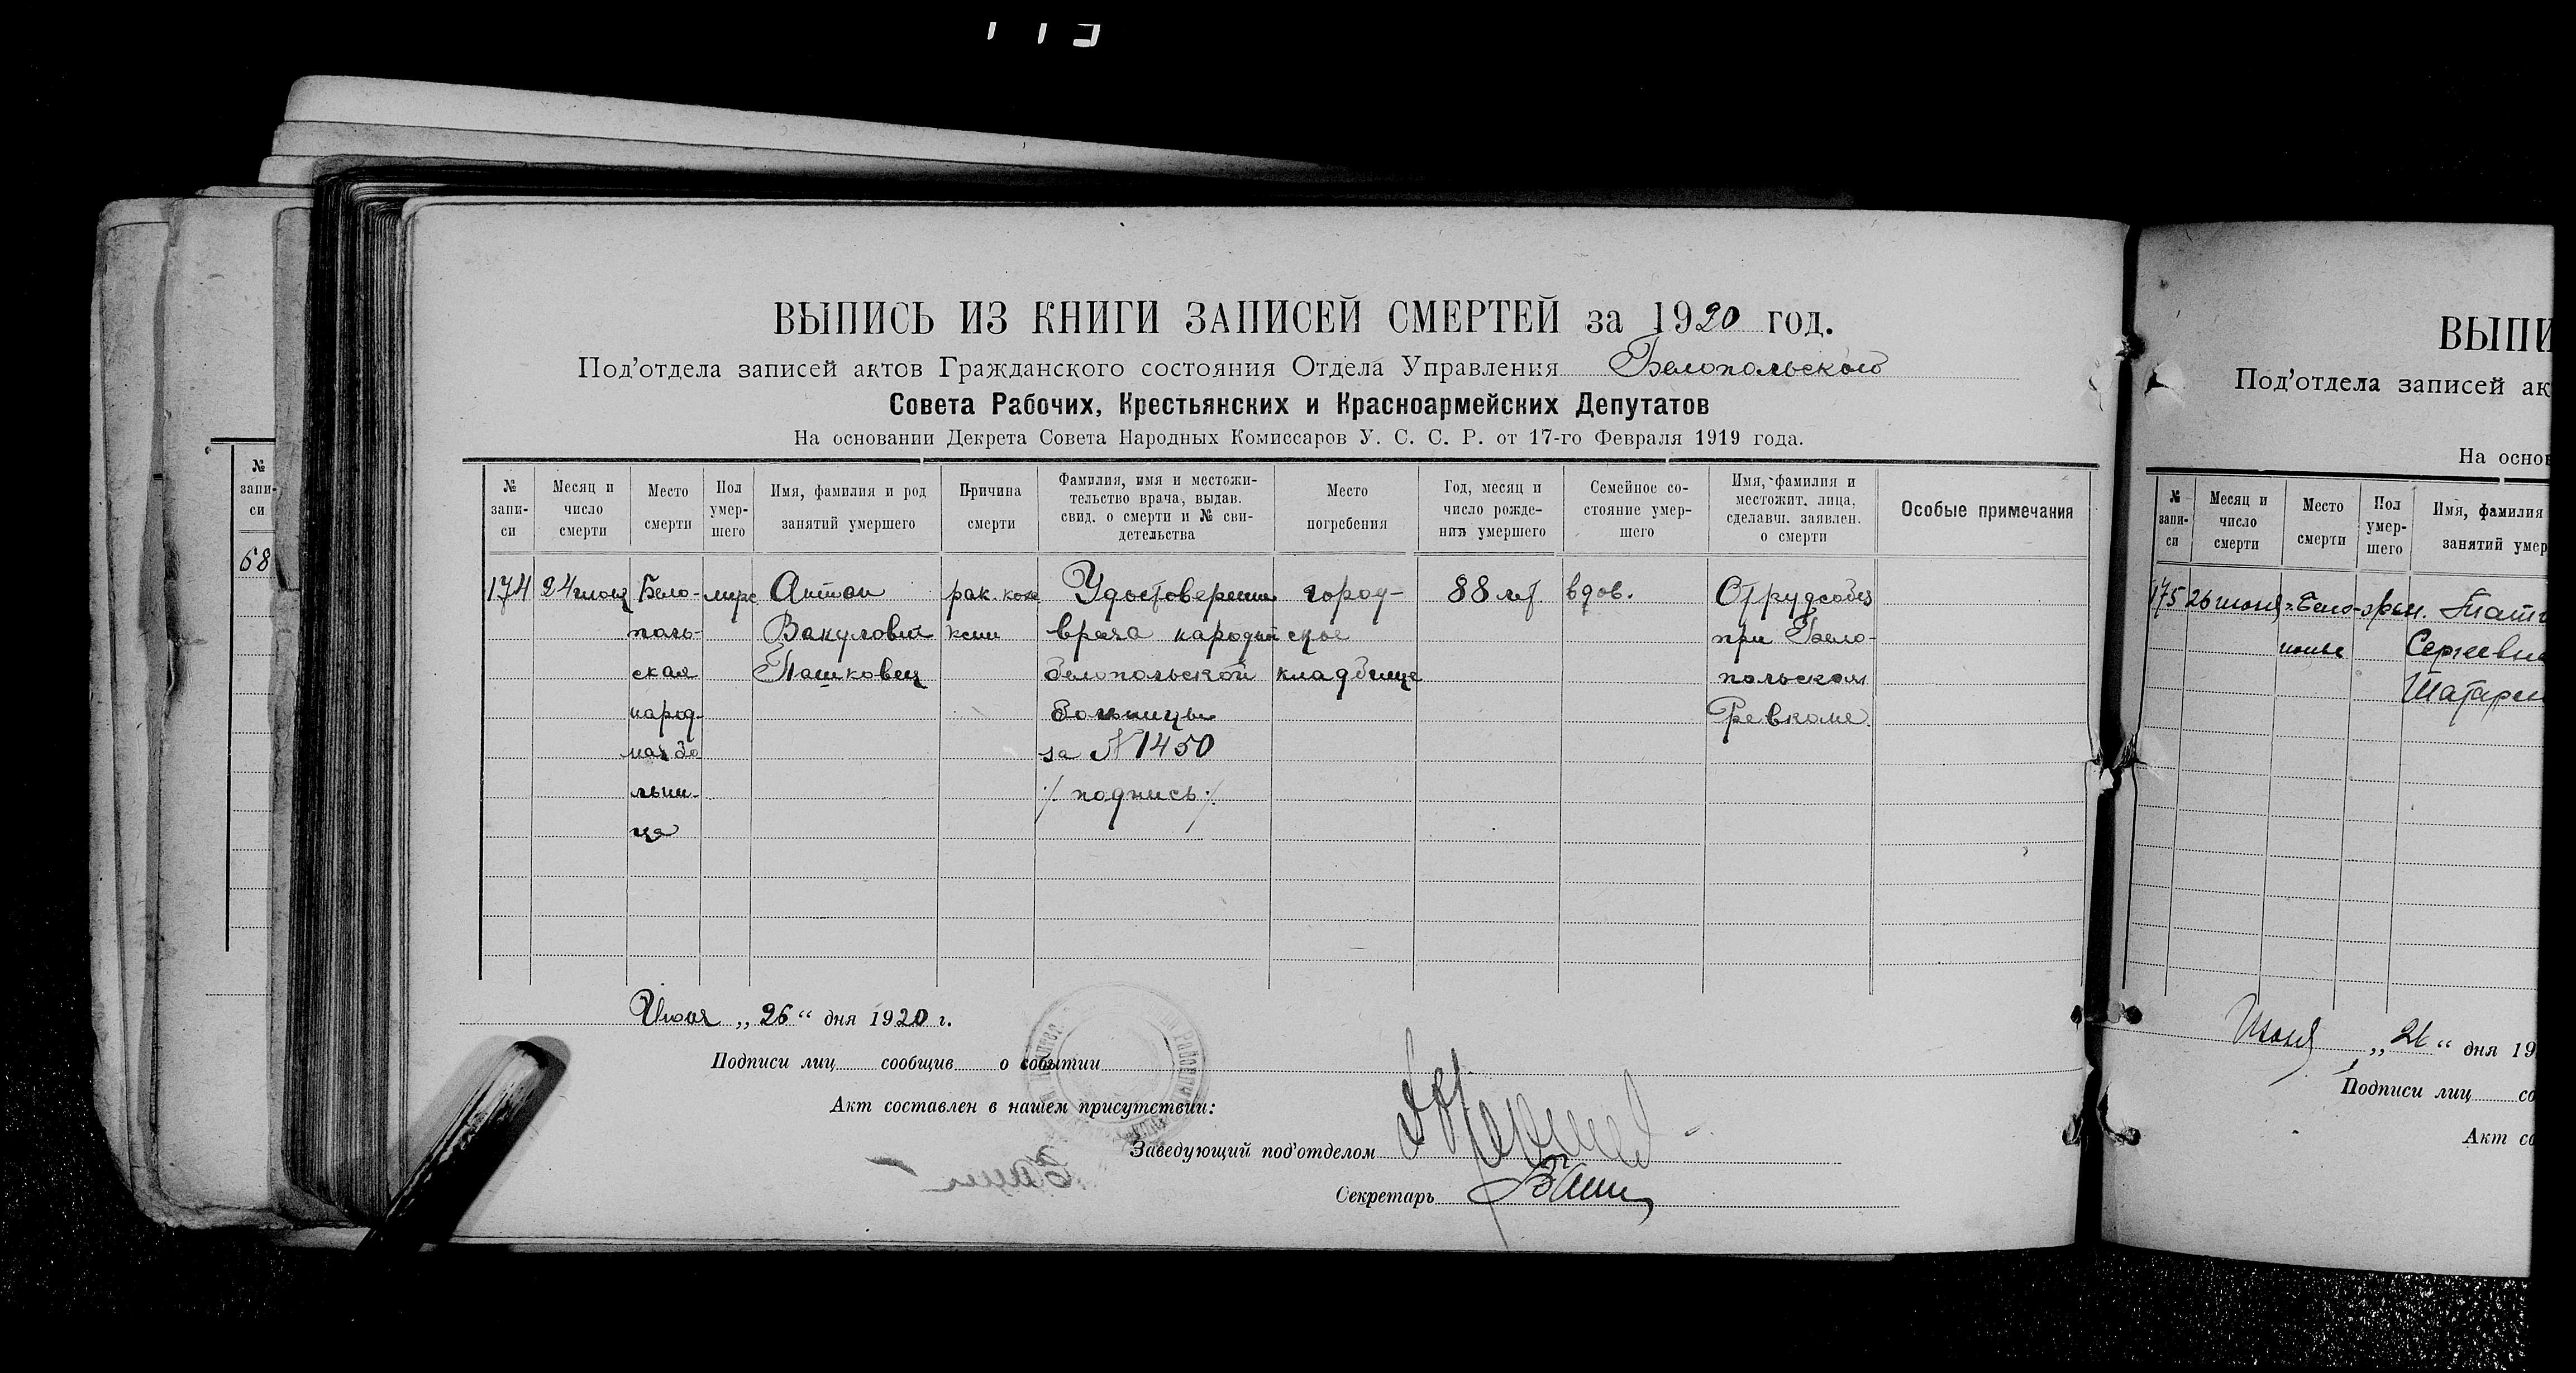 ВЫПИСЬ ИЗ КНИГИ ЗАПИСЕЙ СМЕРТЕЙ за 1920 год.
Под'отдела записей актов Гражданского состояния Отдела Управления Белопольского
Совета Рабочих, Крестьянских и Красноармейских Депутатов
На основании Декрета Совета Народных Комиссаров У. С. С. Р. от 17-го Февраля 1919 года.
№ запи-
си
Месяц и
число
смерти
Место
смерти
Пол
умер-
шего
Имя, фамилия и род
занятий умершего
Причина
смерти
Фамилия, имя и местожи-
тельство врача, выдав.
свид. о смерти и № сви-
детельства
Место
погребения
Год, месяц и
число рожде-
ния умершего
Семейное со-
стояние умер-
шего
Имя, фамилия и
местожит. лица,
сделавш. заявлен.
о смерти
Особые примечания
174
24 июня
Бело-
поль-
ская
народ-
ная бо
льни-
ца
Антон
Вакулович
Пашковец
рак.
Удостоверение
врача народной
белопольской
больницы
за № 1450
/ подпись /
город-
ское
кладбище
88 лет
вдов.
Отрудсобез
при Бело-
польском
Ревкоме.
Июня „ 26 “ дня 1920 г.
Подписи лиц сообщив о событии
Акт составлен в нашем присутствии:
Заведующий под'отделом
Секретарь
№
запи-
си
68
ВЫПИ
Под'отдела записей ак
На основ
№
запи-
си
Месяц и
число
смерти
Место
смерти
Пол
умер-
шего
Имя, фамилия
занятий умер
175
26 июня
Бело-
полье
жен.
Сергеевна
Июня „ 26 “ дня 19
Подписи лиц со
Акт со